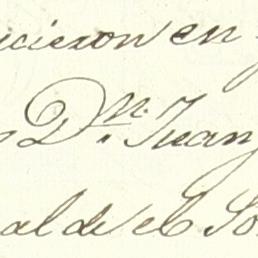 icieron en
Dⁿ. Juan
al de el So